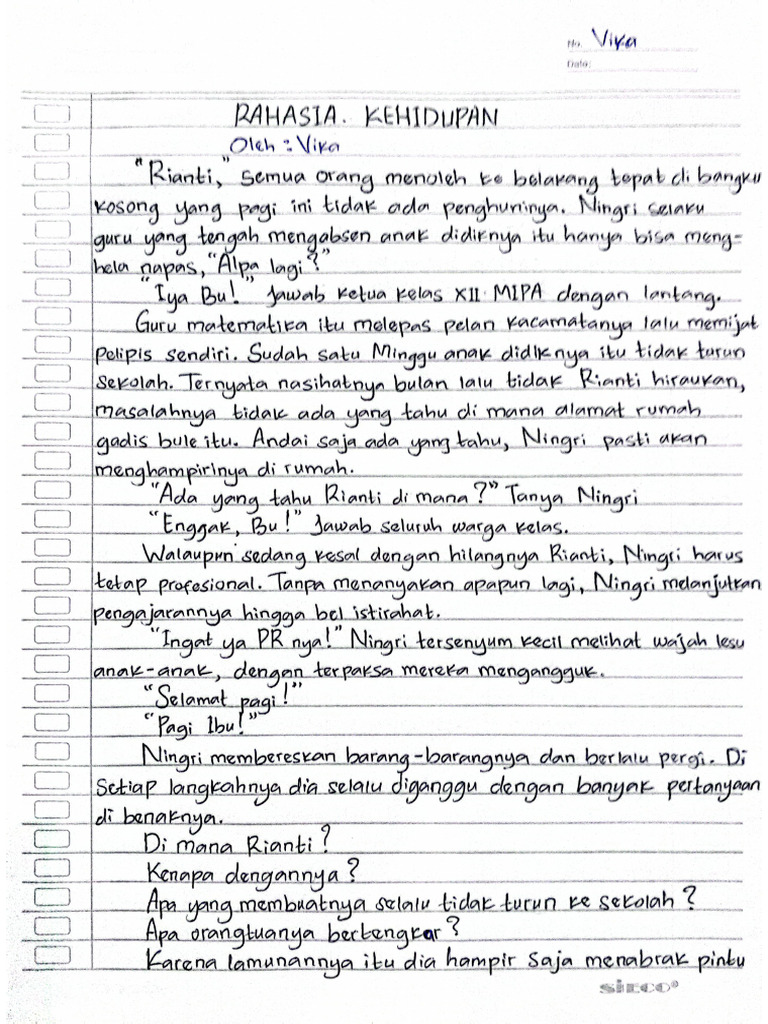 No. Vika
Date:
RAHASIA. KEHIDUPAN
Oleh : Vika
"Rianti," semua orang menoleh ke belakang tepat di bangku
kosong yang pagi ini tidak ada penghuninya. Ningri selaku
guru yang tengah mengabsen anak didiknya itu hanya bisa meng-
hela napas, "Alpa lagi?"
"Iya Bu!" Jawab ketua kelas XII MIPA dengan lantang.
Guru matematika itu melepas pelan kacamatanya lalu memijat
pelipis sendiri. Sudah satu Minggu anak didiknya itu tidak turun
sekolah. Ternyata nasihatnya bulan lalu tidak Rianti hiraukan,
masalahnya tidak ada yang tahu di mana alamat rumah
gadis bule itu. Andai saja ada yang tahu, Ningri pasti akan
menghampirinya di rumah.
"Ada yang tahu Rianti di mana?" Tanya Ningri
"Enggak, Bu!" Jawab seluruh warga kelas.
Walaupun sedang kesal dengan hilangnya Rianti, Ningri harus
tetap profesional. Tanpa menanyakan apapun lagi, Ningri melanjutkan
pengajarannya hingga bel istirahat.
"Ingat ya PR nya!" Ningri tersenyum kecil melihat wajah lesu
anak-anak, dengan terpaksa mereka mengangguk.
"Selamat pagi!"
"Pagi Ibu!"
Ningri membereskan barang-barangnya dan berlalu pergi. Di
setiap langkahnya dia selalu diganggu dengan banyak pertanyaan
di benaknya.
Di mana Rianti?
Kenapa dengannya?
Apa yang membuatnya selalu tidak turun ke sekolah?
Apa orangtuanya bertengkar?
Karena lamunannya itu dia hampir saja menabrak pintu
SIDU